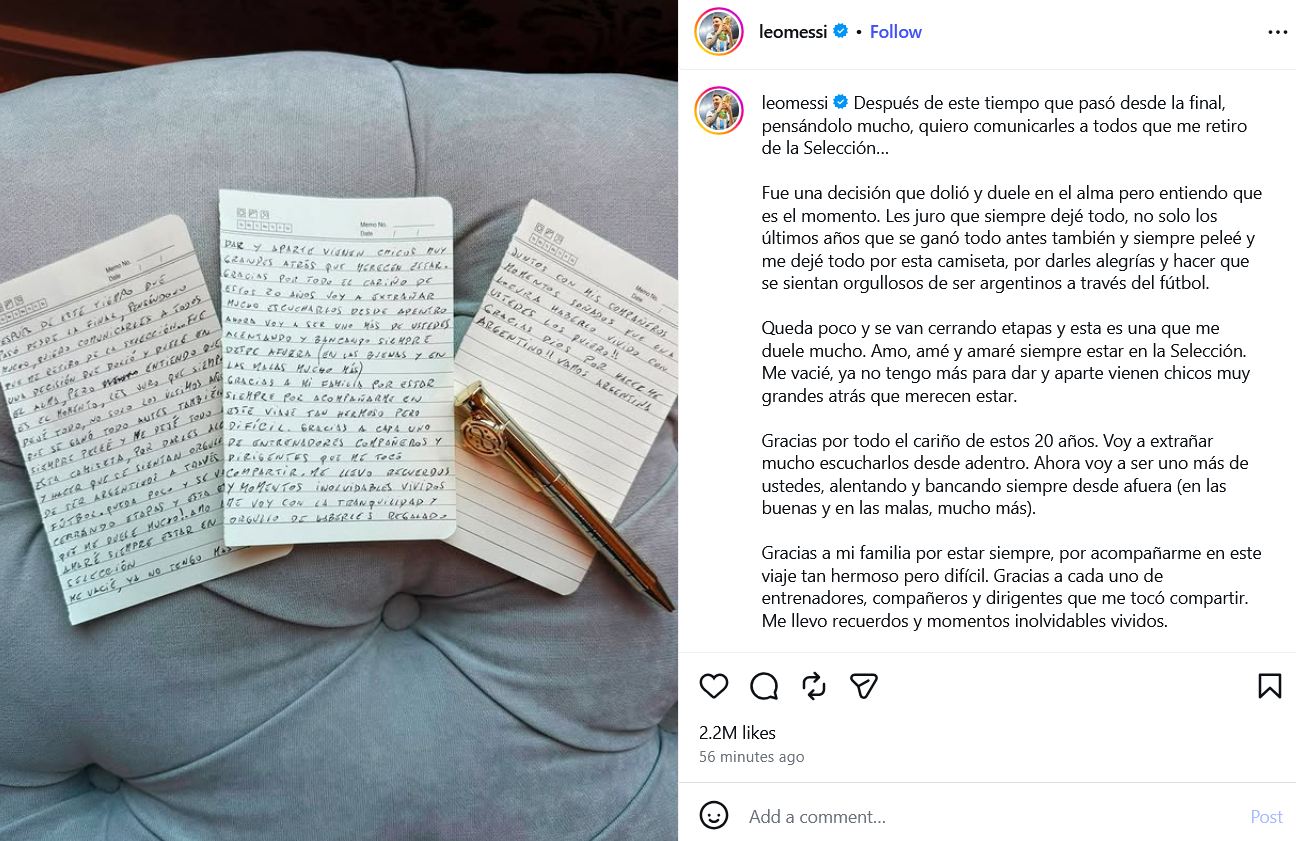 Memo No.
Date / /
ESPUÉS DE ESTE TIEMPO QUE
PASÓ DESDE LA FINAL, PENSÁNDOLO
MUCHO, QUIERO COMUNICARLES A TODOS
QUE ME RETIRO DE LA SELECCIÓN... FUE
UNA DECISIÓN QUE DOLIÓ Y DUELE EN
EL ALMA, PERO ENTIENDO QUE
ES EL MOMENTO, LES JURO QUE SIEMP
DEJÉ TODO, NO SOLO LOS ÚLTIMOS AÑOS
QUE SE GANÓ TODO ANTES TAMBIÉN
SIEMPRE PELEÉ Y ME DEJÉ TODO
ESTA CAMISETA, POR DARLES ALE
Y HACER QUE SE SIENTAN ORGULL
DE SER ARGENTINOS A TRAVÉS
FÚTBOL. QUEDA POCO Y SE V
CERRANDO ETAPAS Y ESTA E
QUE ME DUELE MUCHO. AMO
AMARÉ SIEMPRE ESTAR EN
SELECCIÓN
ME VACIÉ, YA NO TENGO MÁS
Memo No.
Date / /
DAR Y APARTE VIENEN CHICOS MUY
GRANDES ATRÁS QUE MERECEN ESTAR.
GRACIAS POR TODO EL CARIÑO DE
ESTOS 20 AÑOS VOY A EXTRAÑAR
MUCHO ESCUCHARLOS DESDE ADENTRO
AHORA VOY A SER UNO MÁS DE USTEDES
ALENTANDO Y BANCANDO SIEMPRE
DESDE AFUERA (EN LAS BUENAS Y EN
LAS MALAS MUCHO MÁS)
GRACIAS A MI FAMILIA POR ESTAR
SIEMPRE POR ACOMPAÑARME EN
ESTE VIAJE TAN HERMOSO PERO
DIFÍCIL. GRACIAS A CADA UNO
DE ENTRENADORES COMPAÑEROS Y
DIRIGENTES QUE ME TOCÓ
COMPARTIR. ME LLEVO RECUERDOS
Y MOMENTOS INOLVIDABLES VIVIDOS
ME VOY CON LA TRANQUILIDAD Y
ORGULLO DE HABERLES REGALADO
Memo No.
Date
JUNTOS CON MIS COMPAÑEROS
MOMENTOS SOÑADOS FUE UNA
LOCURA HABERLO VIVIDO CON
USTEDES LOS QUIERO!!
GRACIAS DIOS POR HACERME
ARGENTINO!! VAMOS ARGENTINA
leomessi • Follow
leomessi Después de este tiempo que pasó desde la final,
pensándolo mucho, quiero comunicarles a todos que me retiro
de la Selección...
Fue una decisión que dolió y duele en el alma pero entiendo que
es el momento. Les juro que siempre dejé todo, no solo los
últimos años que se ganó todo antes también y siempre peleé y
me dejé todo por esta camiseta, por darles alegrías y hacer que
se sientan orgullosos de ser argentinos a través del fútbol.
Queda poco y se van cerrando etapas y esta es una que me
duele mucho. Amo, amé y amaré siempre estar en la Selección.
Me vacié, ya no tengo más para dar y aparte vienen chicos muy
grandes atrás que merecen estar.
Gracias por todo el cariño de estos 20 años. Voy a extrañar
mucho escucharlos desde adentro. Ahora voy a ser uno más de
ustedes, alentando y bancando siempre desde afuera (en las
buenas y en las malas, mucho más).
Gracias a mi familia por estar siempre, por acompañarme en este
viaje tan hermoso pero difícil. Gracias a cada uno de
entrenadores, compañeros y dirigentes que me tocó compartir.
Me llevo recuerdos y momentos inolvidables vividos.
2.2M likes
56 minutes ago
Add a comment...
Post